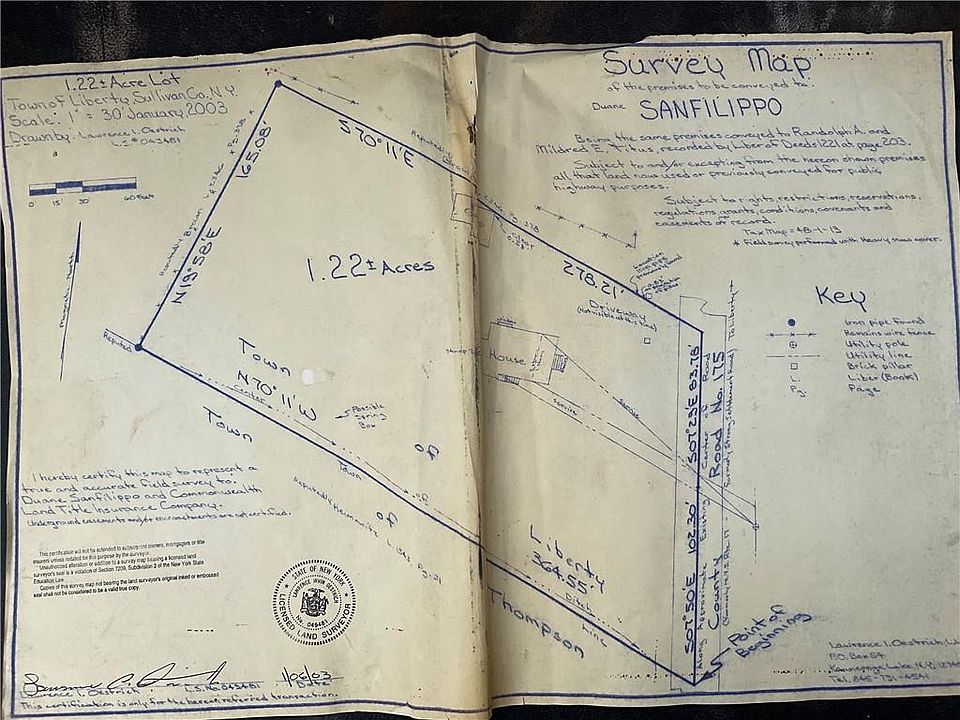 1.22± Acre Lot
Town of Liberty, Sullivan Co., N.Y.
Scale: 1" = 30' January, 2003
Drawn by: Lawrence I. Oestrich
L.S.# 049481
0 15 30 60 feet
Survey Map
of the premises to be conveyed to:
Duane SANFILIPPO
Being the same premises conveyed to Randolph A. and
Mildred E. Titus, recorded by Liber of Deeds 1221 at page 203.
Subject to and/or excepting from the hereon shown premises
all that land now used or previously conveyed for public
highway purposes.
Subject to rights, restrictions, reservations,
regulations, grants, conditions, covenants and
easements of record.
Tax Map = 48-1-13
* Field survey performed with heavy snow cover.
Key
Iron pipe found
Remains wire fence
Utility pole
Utility line
Brick pillar
L. Liber (Book)
Pg. Page
S70°11'E
278.21'
165.08'
N19°58'E
Reputed
1.22± Acres
Driveway
House
Service
Service
Town of Liberty
N70°11'W
364.55'
Center Ditch Line
Possible
String
Box
Town of Thompson
S07°29'E 83.78'
S07°50'E 102.30'
Along Approximate Existing Center of Road
County Road No. 175
To Liberty
Point of
Beginning
I hereby certify this map to represent a
true and accurate field survey to:
Duane Sanfilippo and Commonwealth
Land Title Insurance Company.
Underground easements and/or encroachments are not certified.
This certification will not be extended to subsequent owners, mortgagers or title
insurers unless redated for this purpose by the surveyor.
Unauthorized alteration or addition to a survey map bearing a licensed land
surveyor's seal is a violation of Section 7209, Subdivision 2 of the New York State
Education Law
Copies of this survey map not bearing the land surveyor's original inked or embossed
seal shall not be considered to be a valid true copy.
STATE OF NEW YORK
LAWRENCE IRVIN OESTRICH
No. 049481
LICENSED LAND SURVEYOR
1/06/03
Lawrence I. Oestrich L.S. No. 049481 Date
This certification is only for the hereon referred transaction.
Lawrence I. Oestrich, L.S.
P.O. Box 54
Tel. 845-791-4541